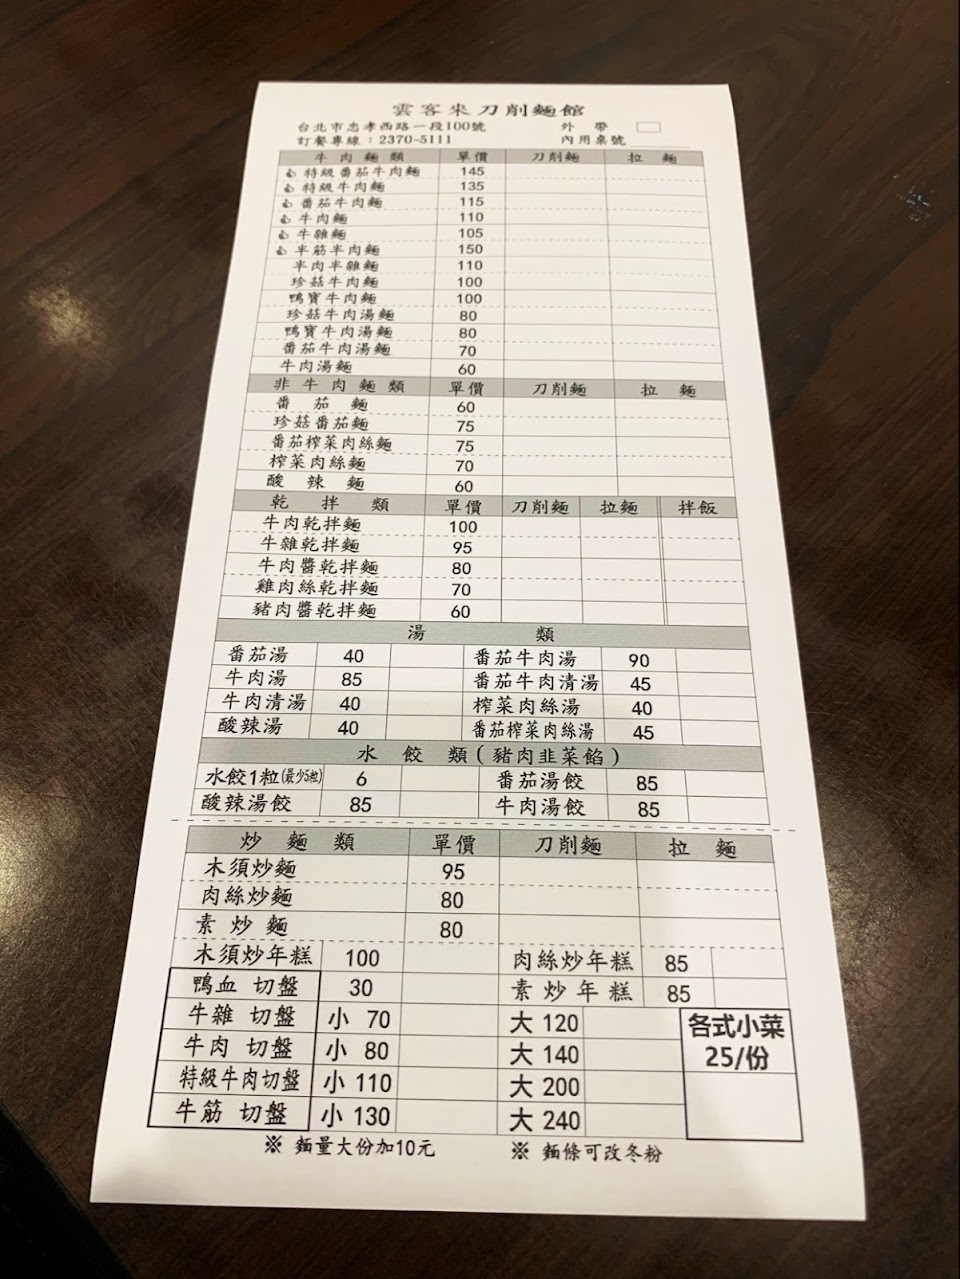 雲客來刀削麵館
台北市忠孝西路一段100號 外帶
訂餐專線：2370-5111 內用桌號
牛肉麵類 單價 刀削麵 拉麵
特級番茄牛肉麵 145
特級牛肉麵 135
番茄牛肉麵 115
牛肉麵 110
牛雜麵 105
半筋半肉麵 150
半肉半雜麵 110
珍菇牛肉麵 100
鴨寶牛肉麵 100
珍菇牛肉湯麵 80
鴨寶牛肉湯麵 80
番茄牛肉湯麵 70
牛肉湯麵 60
非牛肉麵類 單價 刀削麵 拉麵
番茄麵 60
珍菇番茄麵 75
番茄榨菜肉絲麵 75
榨菜肉絲麵 70
酸辣麵 60
乾拌類 單價 刀削麵 拉麵 拌飯
牛肉乾拌麵 100
牛雜乾拌麵 95
牛肉醬乾拌麵 80
雞肉絲乾拌麵 70
豬肉醬乾拌麵 60
湯類
番茄湯 40 番茄牛肉湯 90
牛肉湯 85 番茄牛肉清湯 45
牛肉清湯 40 榨菜肉絲湯 40
酸辣湯 40 番茄榨菜肉絲湯 45
水餃類(豬肉韭菜餡)
水餃1粒(最少5粒) 6 番茄湯餃 85
酸辣湯餃 85 牛肉湯餃 85
炒麵類 單價 刀削麵 拉麵
木須炒麵 95
肉絲炒麵 80
素炒麵 80
木須炒年糕 100 肉絲炒年糕 85
鴨血 切盤 30 素炒年糕 85
牛雜 切盤 小 70 大 120 各式小菜
牛肉 切盤 小 80 大 140 25/份
特級牛肉切盤 小 110 大 200
牛筋 切盤 小 130 大 240
※ 麵量大份加10元 ※ 麵條可改冬粉